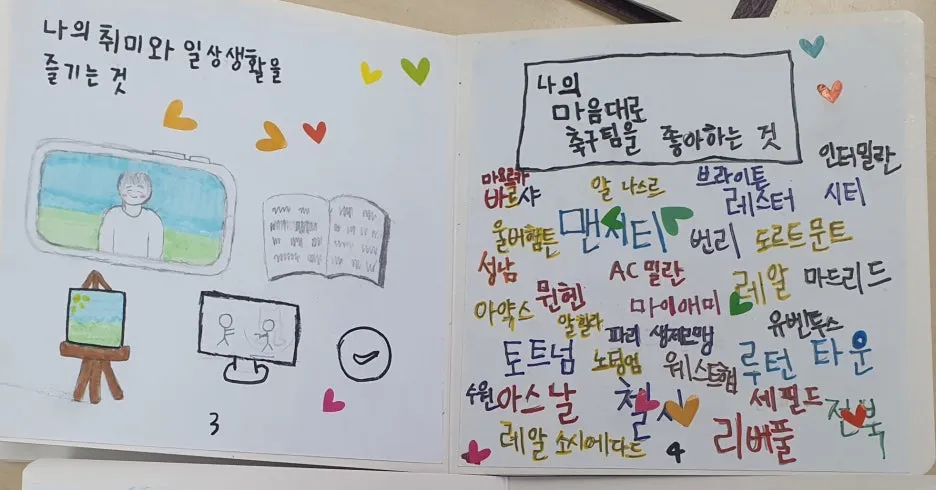 나의 취미와 일상생활을
즐기는 것
3
나의
마음대로
축구팀을 좋아하는 것
인터밀란
마요르카
바르샤
알 나스르
브라이튼
레스터 시티
울버햄튼
맨시티
번리
도르트문트
성남
AC 밀란
레알 마드리드
아약스
뮌헨
마이애미
알힐라
파리 생제르맹
유벤투스
토트넘
노팅엄
웨스트햄
루턴 타운
수원
아스날
첼시
셰필드
전북
레알 소시에다드
리버풀
4